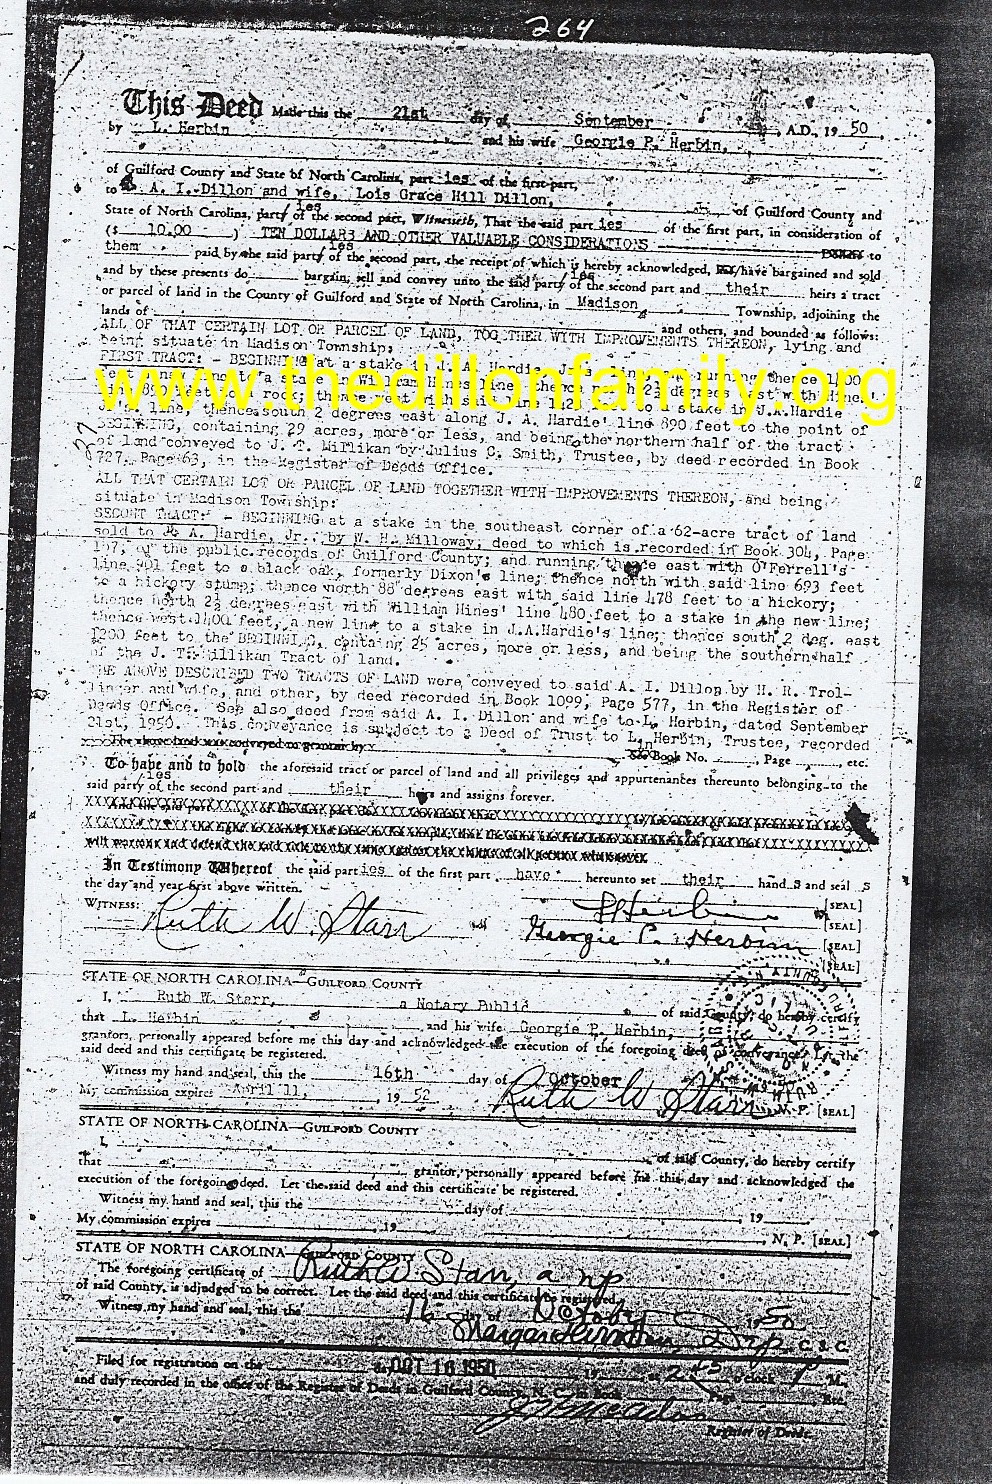 264
This Deed Made this the 21st day of September, A.D., 1950,
by L. Herbin and his wife Georgie P. Herbin,
of Guilford County and State of North Carolina, part ies of the first part,
to A. I. Dillon and wife, Lois Grace Hill Dillon, of Guilford County and
State of North Carolina, part ies of the second part, Witnesseth, That the said part ies of the first part, in consideration of
($ 10.00 ) TEN DOLLARS AND OTHER VALUABLE CONSIDERATIONS to
them paid by the said part ies of the second part, the receipt of which is hereby acknowledged, have bargained and sold
and by these presents do bargain, sell and convey unto the said part ies of the second part and their heirs a tract
or parcel of land in the County of Guilford and State of North Carolina, in Madison Township, adjoining the
lands of and others, and bounded as follows:
ALL OF THAT CERTAIN LOT OR PARCEL OF LAND, TOGETHER WITH IMPROVEMENTS THEREON, lying and
being situate in Madison Township;
FIRST TRACT: - BEGINNING at a stake in J. A. Hardie, Jr's line thence 1400
www.thedillonfamily.org
feet to a stake in William Hines line; thence north 2½ degrees east with Hines'
feet to a rock; thence west with said line to a stake in J.A.Hardie
Jr's. line; thence south 2 degrees east along J. A. Hardie' line 890 feet to the point of
BEGINNING, containing 29 acres, more or less, and being the northern half of the tract
of land conveyed to J. T. Millikan by Julius C. Smith, Trustee, by deed recorded in Book
727, Page 63, in the Register of Deeds Office.
ALL THAT CERTAIN LOT OR PARCEL OF LAND TOGETHER WITH IMPROVEMENTS THEREON, and being
situate in Madison Township:
SECOND TRACT: - BEGINNING at a stake in the southeast corner of a 62-acre tract of land
sold to J. A. Hardie, Jr., by W. H. Milloway, deed to which is recorded in Book 304, Page
197, of the public records of Guilford County; and running thence east with O'Ferrell's
line 901 feet to a black oak, formerly Dixon's line; thence north with said line 693 feet
to a hickory stump; thence north 88 degrees east with said line 478 feet to a hickory;
thence north 2½ degrees east with William Hines' line 480 feet to a stake in the new line;
thence west 1400 feet, a new line to a stake in J.A.Hardie's line; thence south 2 deg. east
1200 feet to the BEGINNING, containg 25 acres, more or less, and being the southern half
of the J. T. Millikan Tract of land.
THE ABOVE DESCRIBED TWO TRACTS OF LAND were conveyed to said A. I. Dillon by H. R. Trol-
linger and wife, and other, by deed recorded in Book 1099, Page 577, in the Register of
Deeds Office. See also deed from said A. I. Dillon and wife to L. Herbin, dated September
21st, 1950. This conveyance is subject to a Deed of Trust to L. Herbin, Trustee, recorded
The above land was conveyed to grantor by in See Book No. , Page , etc.
To have and to hold the aforesaid tract or parcel of land and all privileges and appurtenances thereunto belonging to the
said part ies of the second part and their heirs and assigns forever.
In Testimony Whereof the said part ies of the first part have hereunto set their hand s and seal s
the day and year first above written.
WITNESS: Ruth W. Starr
L Herbin [SEAL]
[SEAL]
Georgie P. Herbin [SEAL]
[SEAL]
STATE OF NORTH CAROLINA—GUILFORD COUNTY
I, Ruth W. Starr, a Notary Public of said County, do hereby certify
that L. Herbin and his wife Georgie P. Herbin,
grantors, personally appeared before me this day and acknowledged the execution of the foregoing deed of conveyance. Let the
said deed and this certificate be registered.
Witness my hand and seal, this the 16th day of October
My commission expires April 11, 1952 Ruth W Starr N. P. [SEAL]
STATE OF NORTH CAROLINA—GUILFORD COUNTY
I, of said County, do hereby certify
that grantor, personally appeared before me this day and acknowledged the
execution of the foregoing deed. Let the said deed and this certificate be registered.
Witness my hand and seal, this the day of 19
My commission expires , 19 N. P. [SEAL]
STATE OF NORTH CAROLINA—GUILFORD COUNTY
The foregoing certificate of Ruth W Starr, a np
of said County, is adjudged to be correct. Let the said deed and this certificate be registered.
Witness my hand and seal, this the 16 of October 1950
C. S. C.
Filed for registration on the OCT 16 1950 19 at 2 45 o'clock P M.,
and duly recorded in the office of the Register of Deeds in Guilford County, N. C., in Book Page Etc.
Register of Deeds.